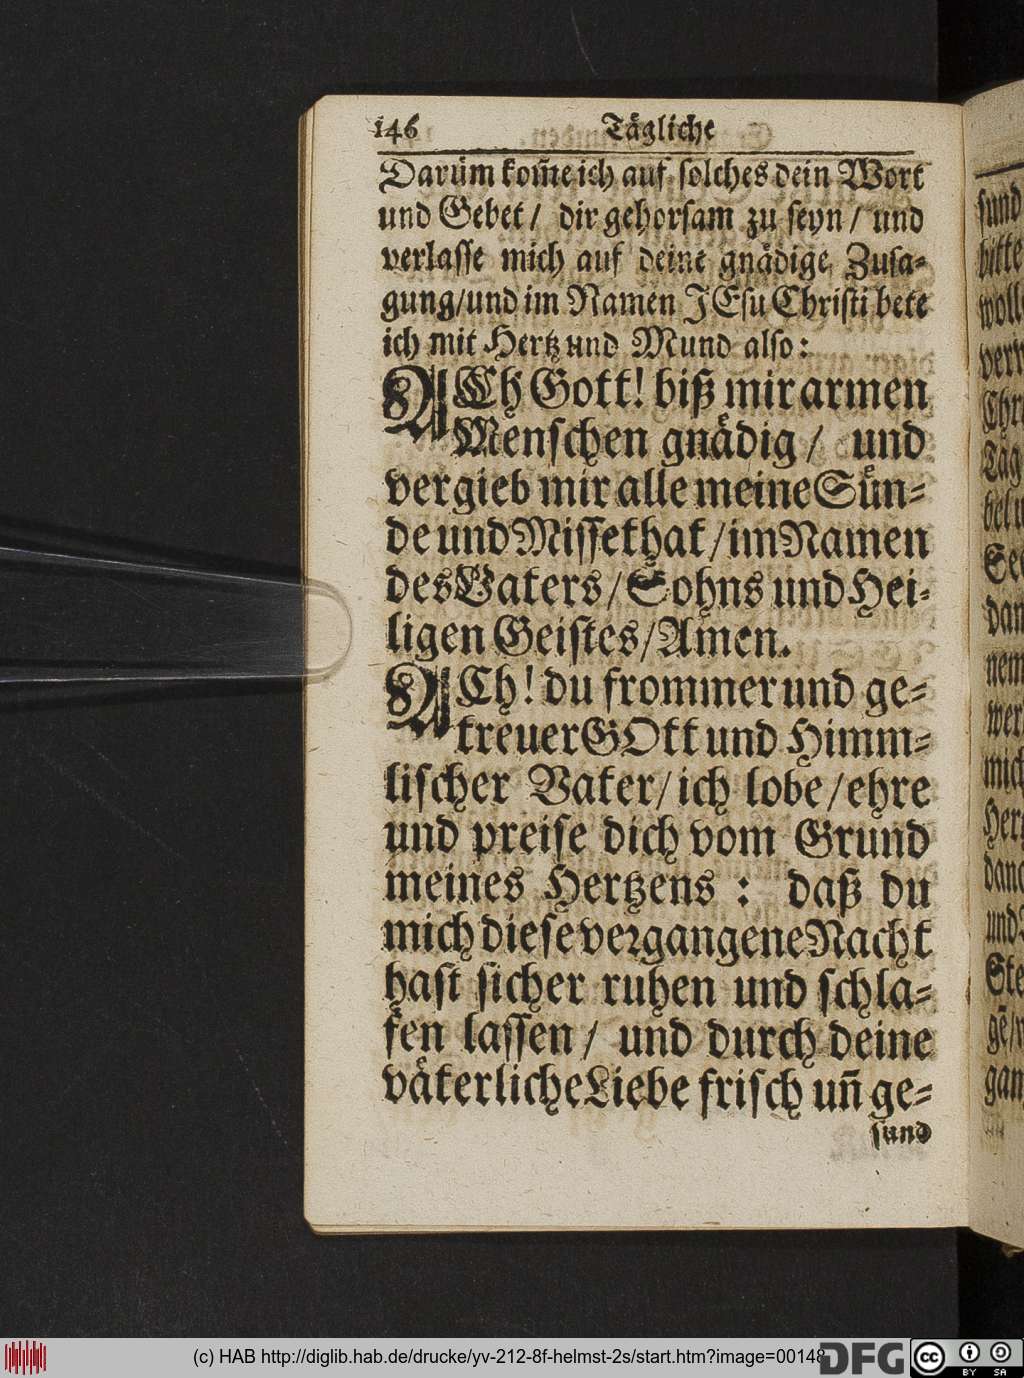 146 Tägliche
Darüm kom̃e ich auf solches dein Wort
und Gebet / dir gehorsam zu seyn / und
verlasse mich auf deine gnädige Zusa-
gung/und im Namen JEsu Christi bete
ich mit Hertz und Mund also:
ACh Gott! biß mir armen
Menschen gnädig / und
vergieb mir alle meine Sün-
de und Missethat /im Namen
des Vaters /Sohns und Hei-
ligen Geistes /Amen.
ACh! du frommer und ge-
treuer GOtt und Himm-
lischer Vater/ ich lobe /ehre
und preise dich vom Grund
meines Hertzens : daß du
mich diese vergangene Nacht
hast sicher ruhen und schla-
fen lassen / und durch deine
väterliche Liebe frisch uñ ge-
sund
sund
bitte
woll
Chri
Täg
dan
nem
wer
mich
Her
und
Ste
gan
(c) HAB http://diglib.hab.de/drucke/yv-212-8f-helmst-2s/start.htm?image=00148
DFG
cc BY SA